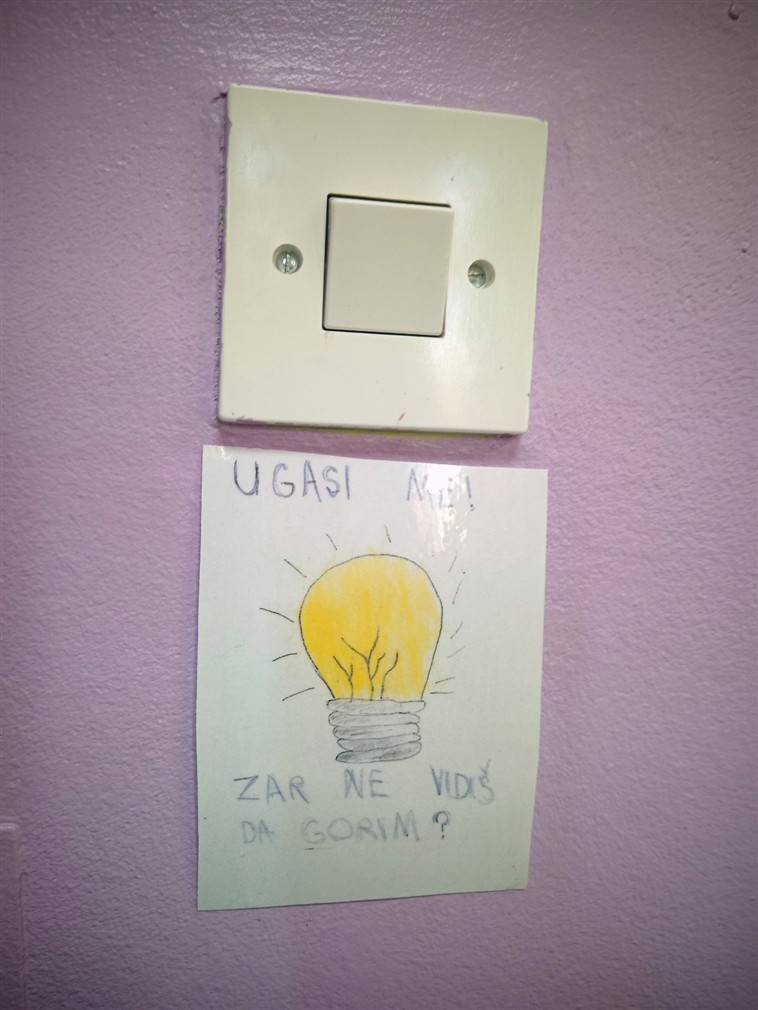 UGASI ME!
ZAR NE VIDIŠ
DA GORIM?